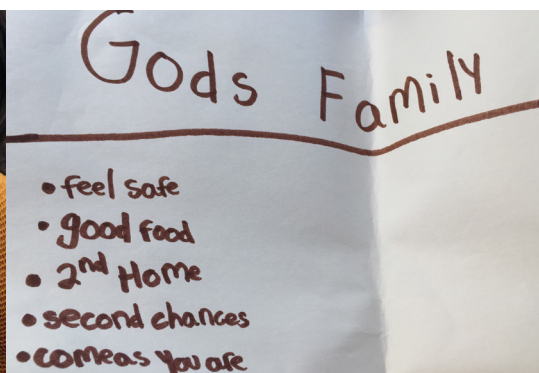 Gods Family
• feel safe
• good food
• 2nd Home
• second chances
• come as you are